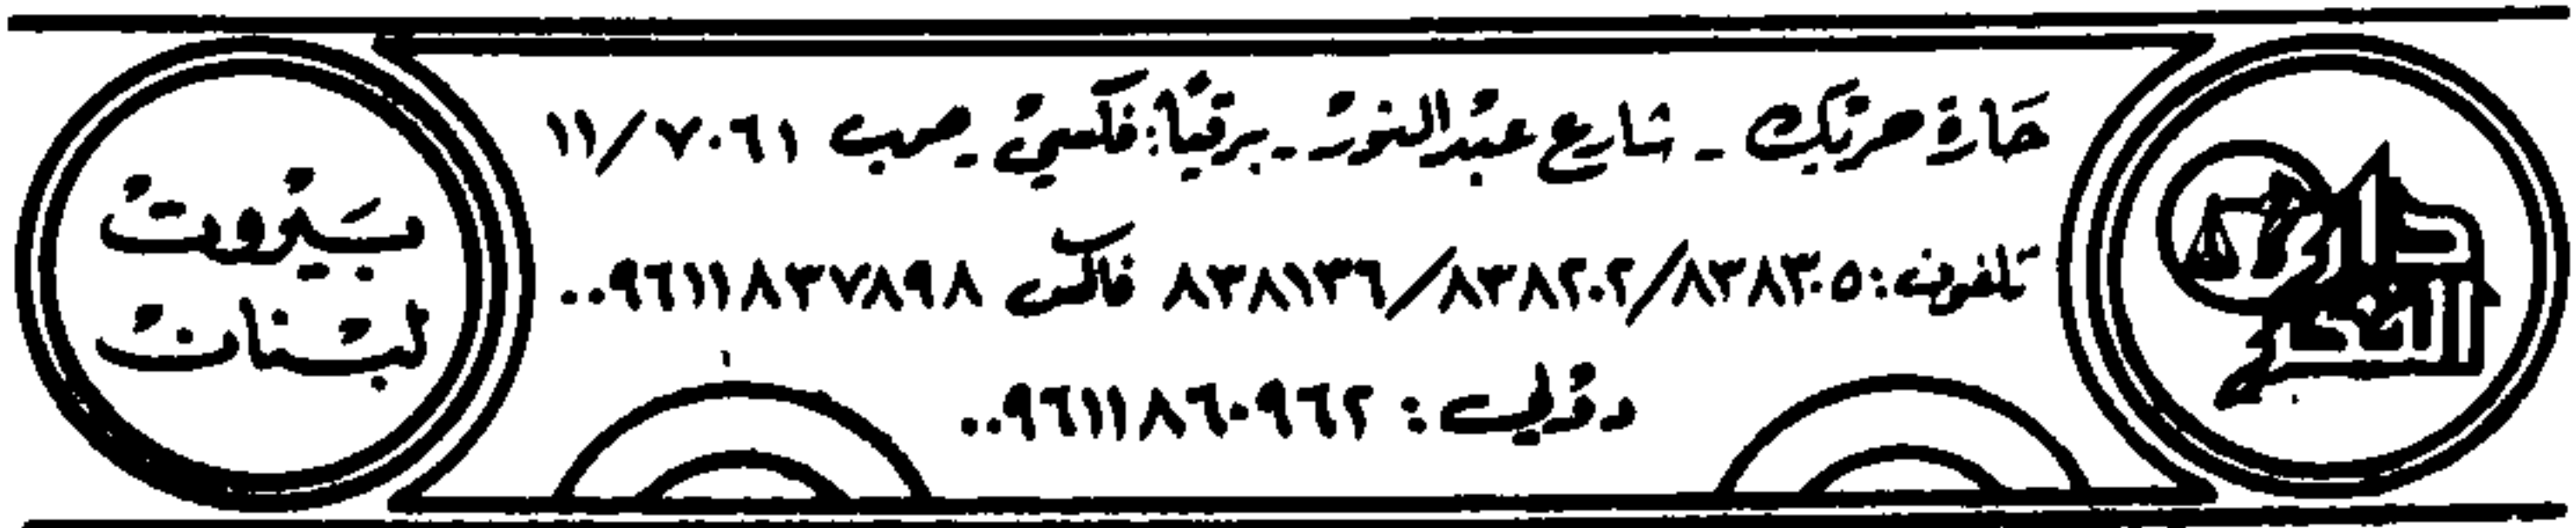 حَارة حرَيك - شارع عبْد النور - برقيًا: فكسي - ص.ب ١١/٧٠٦١
تلفون: ٨٣٨٣٠٥/٨٣٨٢٠٢/٨٣٨١٣٦ فاكس ٠٠٩٦١١٨٣٧٨٩٨
دولي: ٠٠٩٦١١٨٦٠٩٦٢
بَيْروت
لبْنان